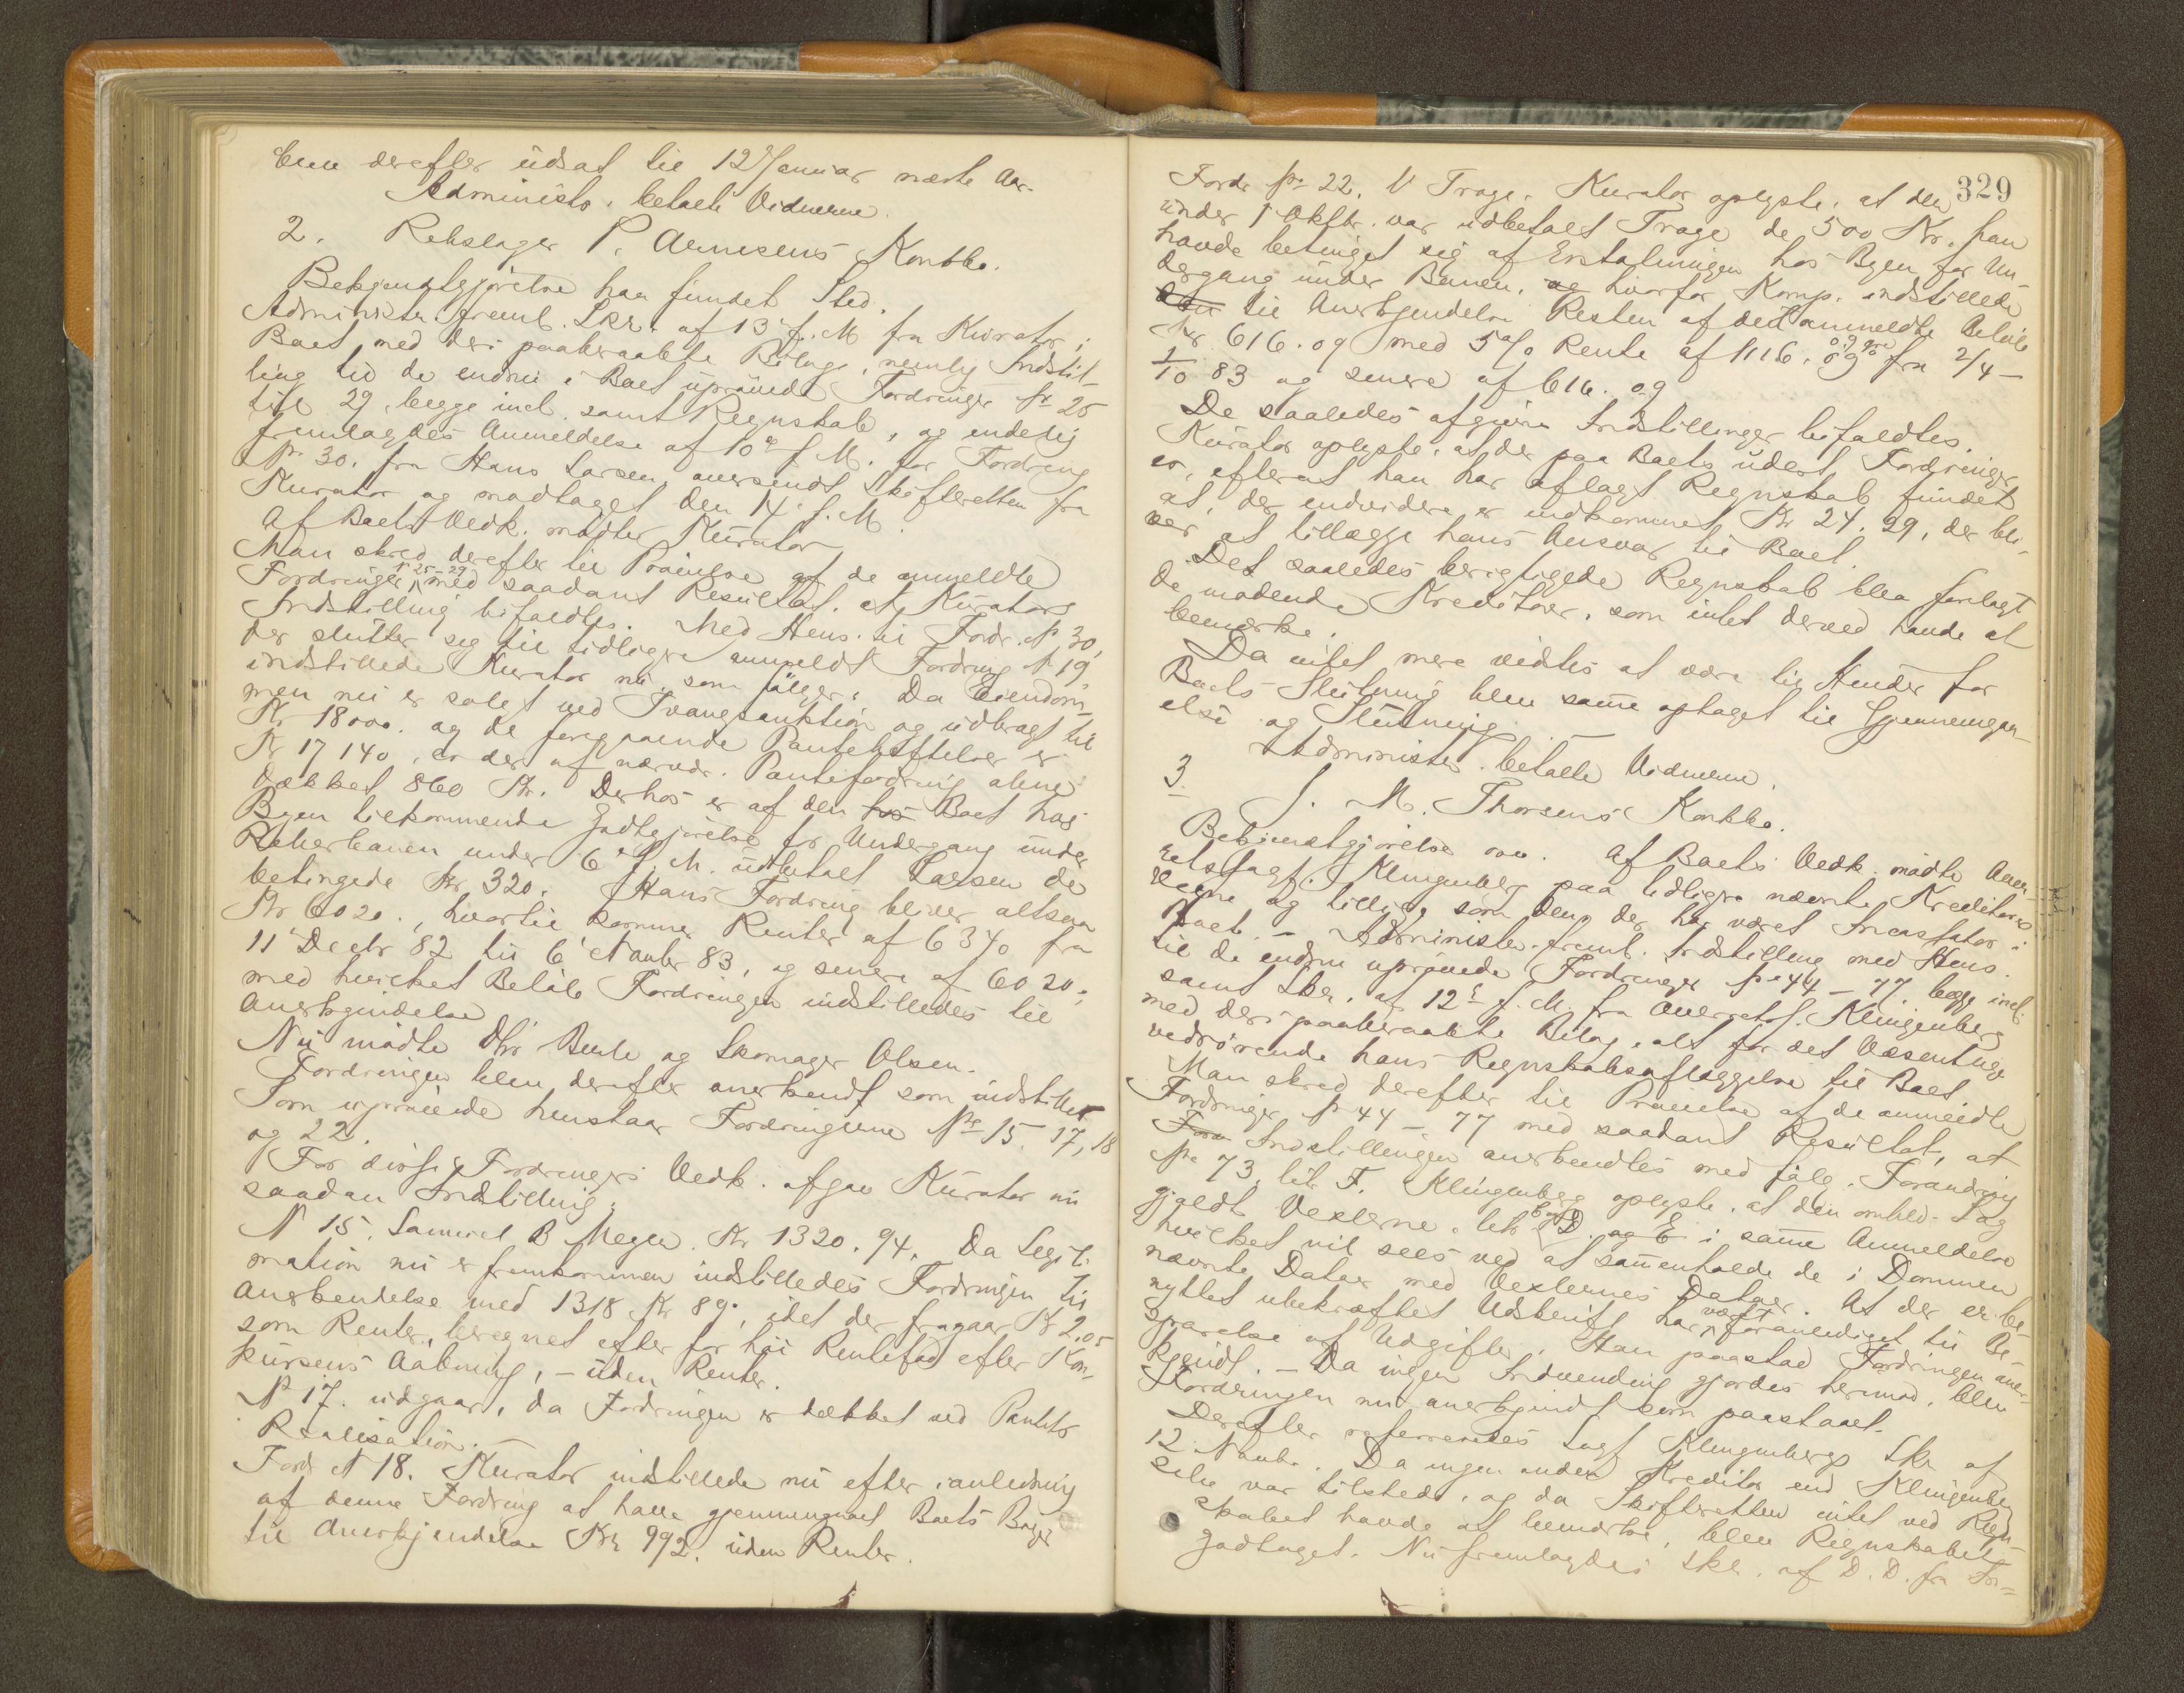 derefter udsat til 12 Januar næste Aar.
Administr. betalte Vidnerne.
2. Rebslager P. Arnesens Konkbo.
Bekjendtgjørelse har fundet Sted.
Administr. freml. Skr. af 13 f. M. fra Kurator i
Boet med deri paaberaabte Bilage, nemlig Indstil-
ling til de endnu i Boet uprøvede Fordringer No 25
til 29, begge incl. samt Regnskab, og endelig
fremlagdes Anmeldelse af 10de f. M. for Fordring
No 30. fra Hans Larsen, oversendt Skifteretten fra
Kurator og modtaget den 14. f. M.
Af Boets Vedk. mødte Kurator
Man skred derefter til Prøvelse af de anmeldte
Fordringer N 25-29 med saadant Resultat, at Kurators
Indstilling bifaldtes. Med Hens. til Fordr. No 30,
der slutter sig til tidligere anmeldt Fordring N 19,
indstillede Kurator nu, som følger: Da Eiendom-
men nu er solgt ved Tvangsauktion og udbragt til
Kr 18000. og de foregaaende Panteheftelser er
Kr 17140, er der af nærvær. Pantefordring alene
dækket 860 Kr. Derhos er af den hos Boet hos
Byen tilkommende Godtgjørelse for Undergang under
Reberbanen under 6 f. M. udbetalt Larsen de
betingede Kr 320. Hans Fordring bliver altsaa
Kr 6020., hvortil kommer Renter af 6340 fra
11 Decbr 82 til 6 Novbr 83, og senere af 6020.,
med hvilket Beløb Fordringen indstilledes til
Anerkjendelse
Nu mødte Dhr. og Skomager Olsen.
Fordringen blev derefter anerkjendt som indstillet
Som uprøvede henstaar Fordringerne No 15, 17, 18
og 22.
For disse Fordringers Vedk. afgav Kurator nu
saadan Indstilling:
N 15. Samuel B Meyer. Kr 1320.94. Da Legiti-
mation nu er fremkommen indstilledes Fordringen til
Anerkendelse med 1318 Kr 89, idet der fragaar Kr 2.05
som Renter, beregnet efter for høi Rentefod efter Kon-
kursens Aabning, - uden Renter.
No 17. udgaar, da Fordringen er dækket ved Pantets
Realisation. -
Ford N 18. Kurator indstillede nu efter i anledning
af denne Fordring at have gjennemgaaet Boets Bøger
til Anerkjendelse Kr 992. uden Renter.
329
Fordr No 22. V Trage. Kurator oplyste, at den
under 1 Oktbr. var udbetalt Trage de 500 Kr. han
havde betinget sig af Erstatningen hos Byen for Un-
dergang under Banen, og hvorfor Komp. indstillede
til Anerkjendelse Resten af det anmeldte Beløb
Kr. 616.09 med 5% Rente af 1116.09 fra 2/4 -
1/10 83 og senere af 616.09
De saaledes afgivne Indstillinger bifaldtes.
Kurator oplyste, at der paa Boets udest. Fordringer
er, efterat han har aflagt Regnskab fundet
at, der endvidere er indkommet Kr 24.29, der bli-
ver at tillægge hans Ansvar til Boet.
Det saaledes berigtigede Regnskab blev forelagt
de mødende Kreditorer, som intet derved havde at
bemærke.
Da intet mere vidstes at være til Hinder for
Boets Slutning blev samme optaget til Gjennemgaa-
else og Slutning. -
Administr. betalte Vidnerne.
3. J. M. Thorsens Konkbo.
Bekjendtgjørelse Af Boets Vedk. mødte Over-
retssagf. Klingenberg paa tidligere nævnte Kreditorers
Vegne og tillige som den, der har været Incassator i
Boet. - Administr. freml. Indstilling med Hens.
til de endnu uprøvede Fordringer No 44 - 77. begge incl.
samt Skr. af 12te f. M. fra Overretssf. Klingenberg
med deri paaberaabte Bilag, alt for det Væsentlige
vedrørende hans Regnskabsaflæggelse til Boet
Man skred derefter til Prøvelse af de anmeldte
Fordringer No 44 - 77 med saadant Resultat, at
Indstillingen anerkendtes med følg. Forandring
No 73, lit F. Klingenberg oplyste, at den omhl. Sag
gjældt Vexlerne. litr D og E i samme Anmeldelse
hvilket vil sees ved at sammenholde de i Dommen
nævnte Datoer med Vexlernes Datoer. At der er be-
nyttet ubekræftet Udskrift har været foranlediget til Be-
sparelse af Udgifter. Han paastod Fordringen aner-
kjendt. - Da ingen Indvending gjordes herimod, blev
Fordringen nu anerkjendt som paastaaet.
Derefter refereredes Sagf Klingenbergs Skr af
12 Novbr. Da ingen anden Kreditor end Klingenberg
selv var tilstede, og da Skifteretten intet ved Regn-
skabet havde at bemærke, blev Regnskabet
godtaget. Nu fremlagdes Skr. af D. D. fra